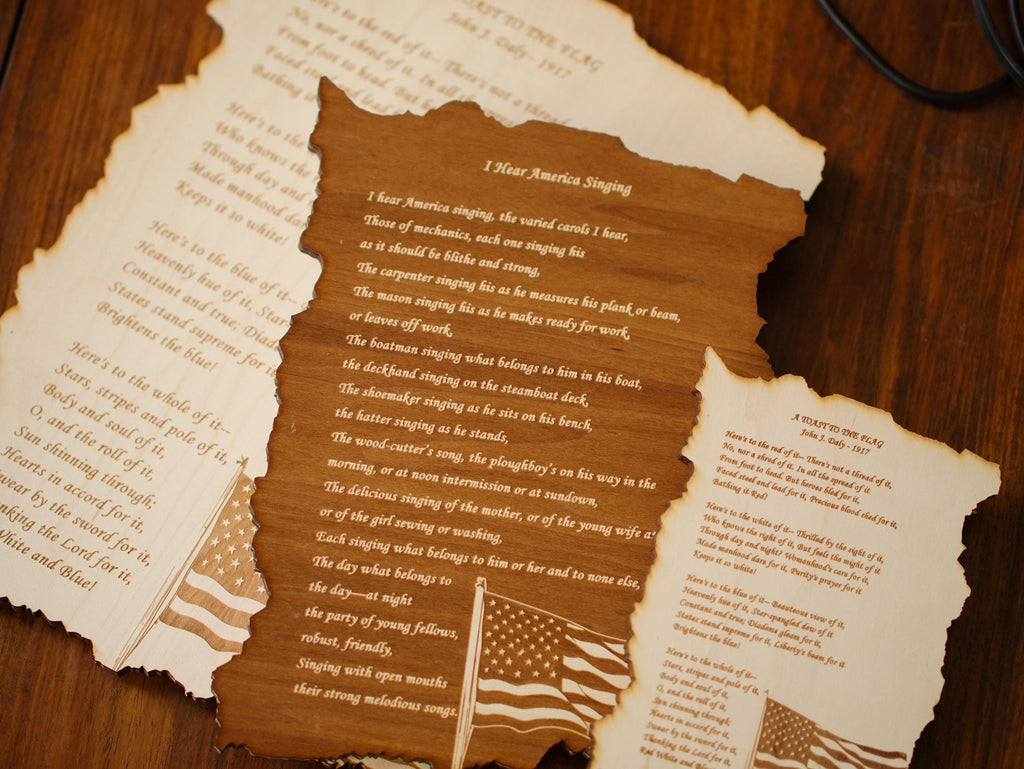 A TOAST TO THE FLAG
John J. Daly - 1917
Here's to the red of it— There's not a thread
No, nor a shred of it. In all the
From foot to head. But
Faced
Bathing
Here's to the
Who knows the
Through day and
Made manhood
Keeps it so white!
Here's to the blue of it—
Heavenly hue of it, Star
Constant and true; Diadem
States stand supreme for it
Brightens the blue!
Here's to the whole of it—
Stars, stripes and pole of it,
Body and soul of it,
O, and the roll of it,
Sun shinning through,
Hearts in accord for it,
Swear by the sword for it,
Thanking the Lord for it,
White and Blue!
I Hear America Singing
I hear America singing, the varied carols I hear,
Those of mechanics, each one singing his
as it should be blithe and strong,
The carpenter singing his as he measures his plank or beam,
The mason singing his as he makes ready for work,
or leaves off work,
The boatman singing what belongs to him in his boat,
the deckhand singing on the steamboat deck,
The shoemaker singing as he sits on his bench,
the hatter singing as he stands,
The wood-cutter's song, the ploughboy's on his way in the
morning, or at noon intermission or at sundown,
The delicious singing of the mother, or of the young wife a
or of the girl sewing or washing,
Each singing what belongs to him or her and to none else,
The day what belongs to
the day—at night
the party of young fellows,
robust, friendly,
Singing with open mouths
their strong melodious songs.
A TOAST TO THE FLAG
John J. Daly - 1917
Here's to the red of it— There's not a thread of it,
No, nor a shred of it. In all the spread of it
From foot to head. But heroes bled for it,
Faced steel and lead for it, Precious blood shed for it,
Bathing it Red!
Here's to the white of it— Thrilled by the sight of it,
Who knows the right of it, But feels the might of it
Through day and night? Womanhood's care for it,
Made manhood dare for it, Purity's prayer for it
Keeps it so white!
Here's to the blue of it— Beauteous view of it,
Heavenly hue of it, Star-spangled dew of it
Constant and true; Diadems gleam for it,
States stand supreme for it, Liberty's beam for it
Brightens the blue!
Here's to the whole of it—
Stars, stripes and pole of it,
Body and soul of it,
O, and the roll of it,
Sun shinning through,
Hearts in accord for it,
Swear by the sword for it,
Thanking the Lord for it,
Red White and Blue!